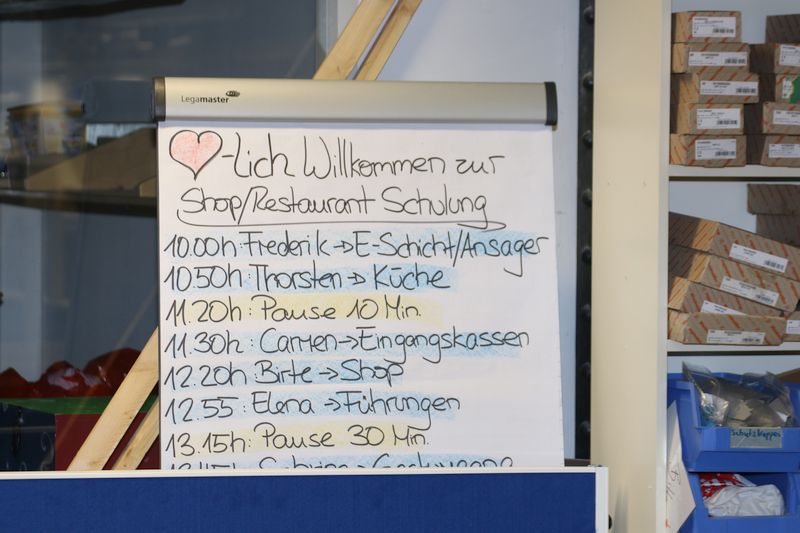 Legamaster
-lich Willkommen zur
Shop/Restaurant Schulung
10.00h: Frederik→E-Schicht/Ansager
10.50h: Thorsten→Küche
11.20h: Pause 10 Min.
11.30h: Carmen→Eingangskassen
12.20h Birte→Shop
12.55: Elena→Führungen
13.15h: Pause 30 Min.
Schutzkappen